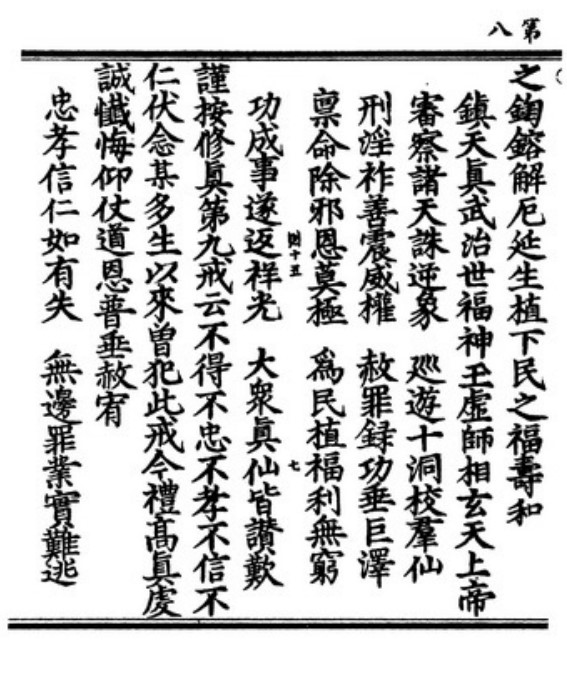 第八
之鈎鎔解厄延生植下民之福壽和
鎮天眞武治世福神玉虛師相玄天上帝
審察諸天誅逆象　巡遊十洞校羣仙
刑淫祚善震威權　赦罪録功垂巨澤
禀命除邪恩莫極　爲民植福利無窮
功成事遂返祥光　大衆眞仙皆讚歎
則十五　七
謹按修眞第九戒云不得不忠不孝不信不
仁伏念某多生以來曽犯此戒今禮髙眞虔
誠懺悔仰仗道恩普垂赦宥
忠孝信仁如有失　無邊罪業實難逃